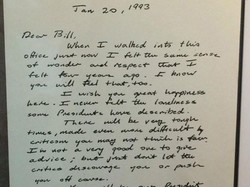 Jan 20, 1993
Dear Bill,
When I walked into this
office just now I felt the same sense
of wonder and respect that I
felt four years ago. I know
you will feel that, too.
I wish you great happiness
here. I never felt the loneliness
some Presidents have described.
There will be very tough
times, made even more difficult by
criticism you may not think is fair.
I'm not a very good one to give
advice; but just don't let the
critics discourage you or push
you off course.
President